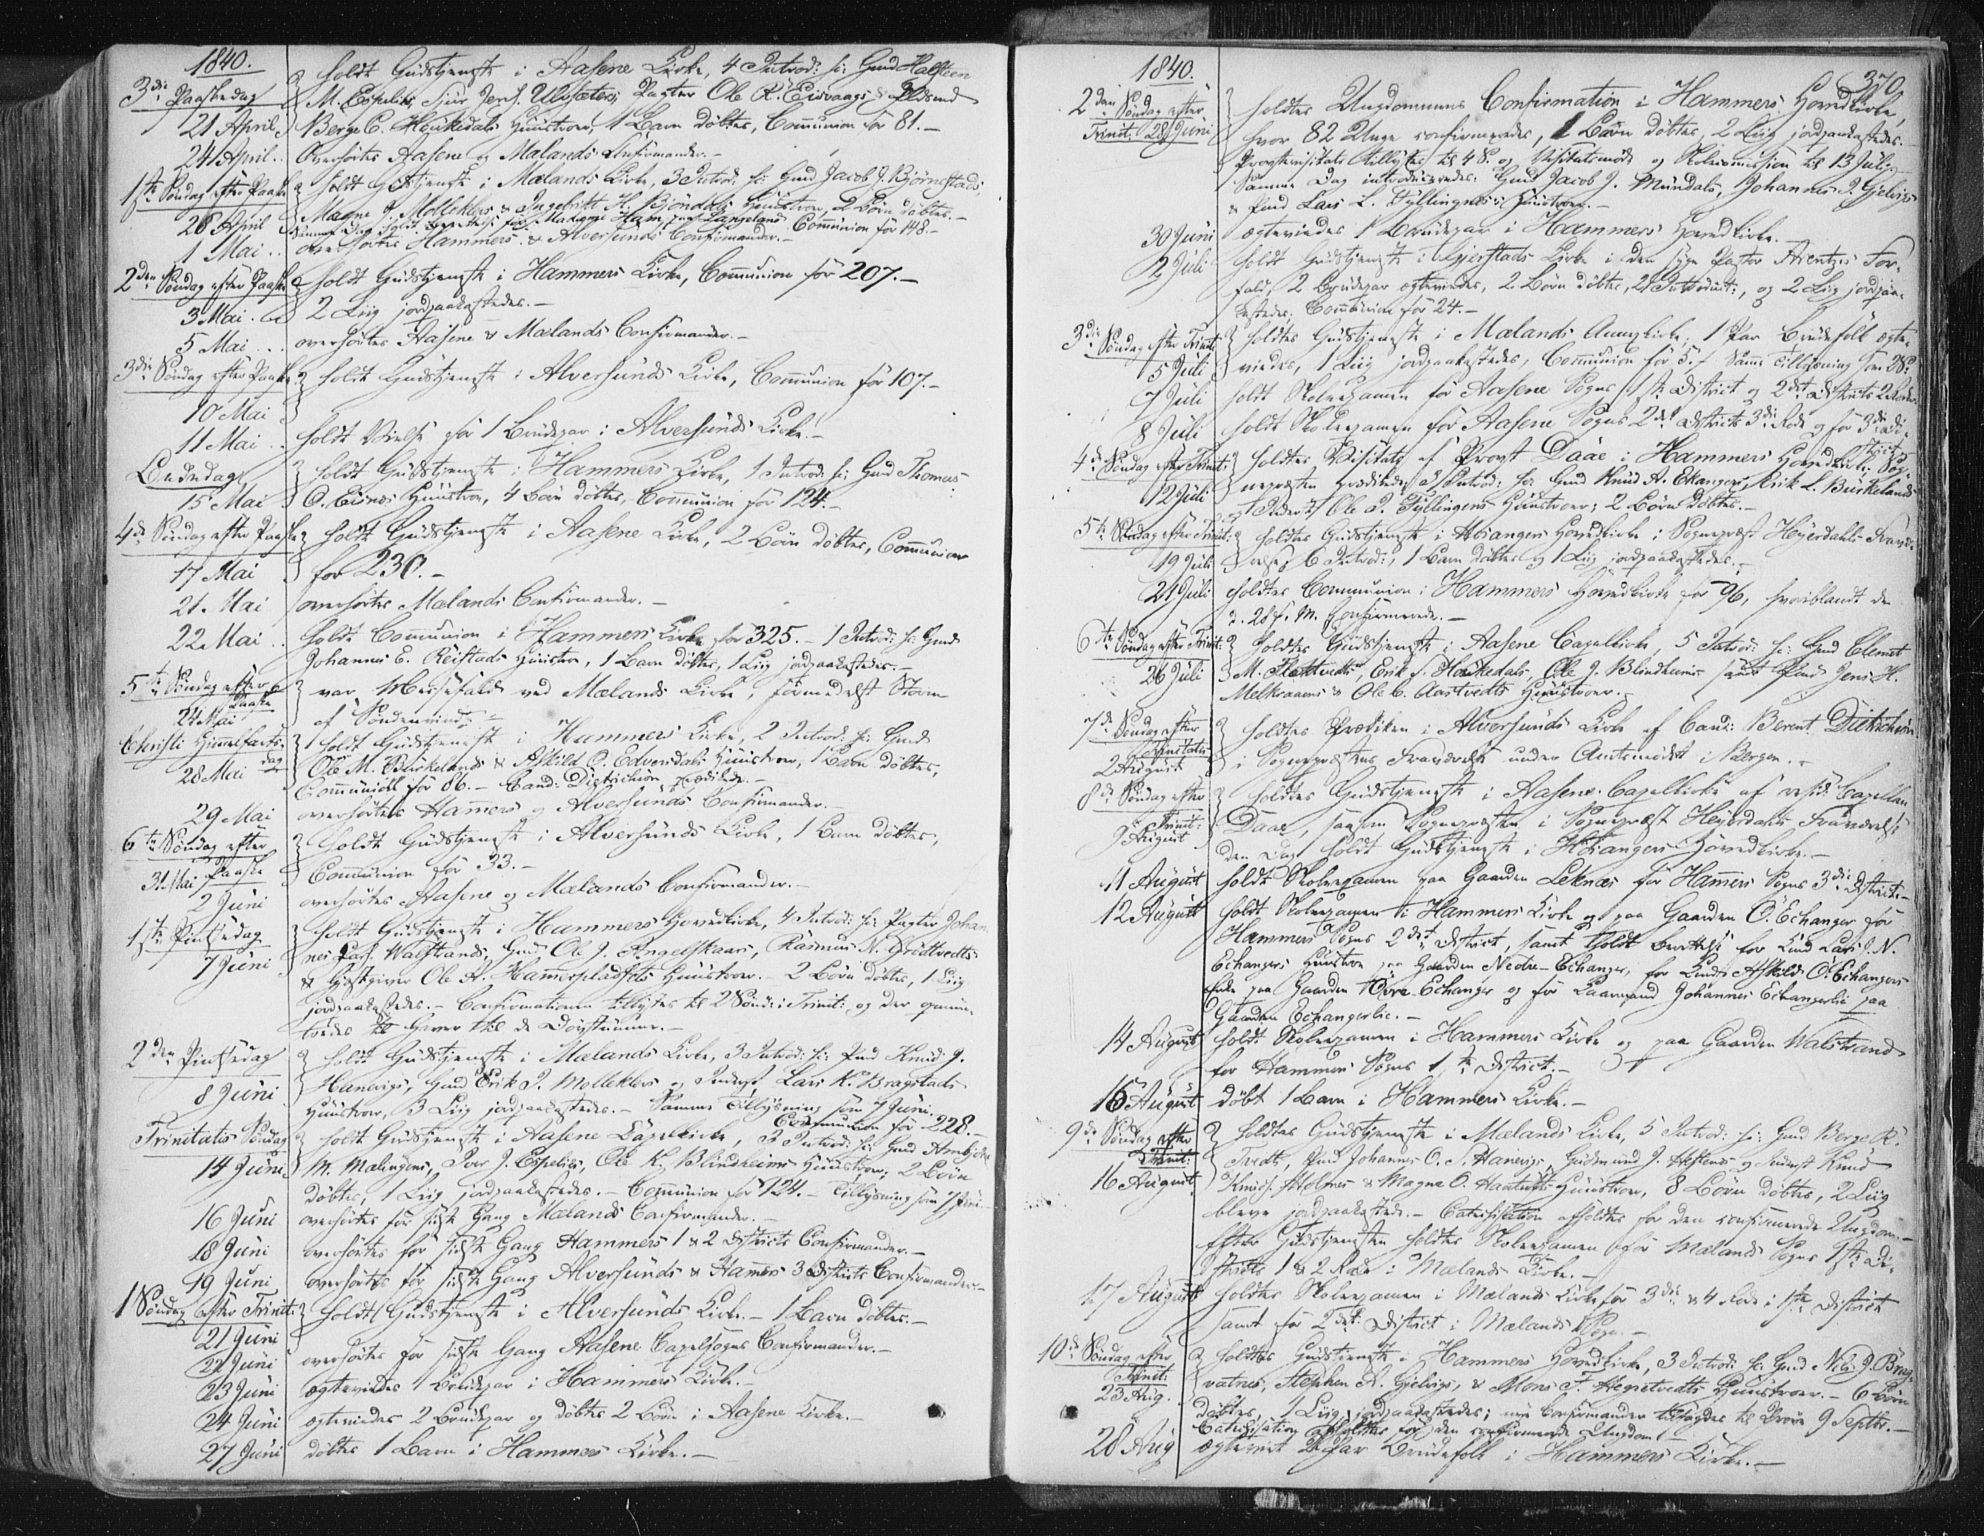 1840.
3die Paaskedag
21 April
holdt Gudstjeneste i Aasene Kirke, 4 Introd: s: Gmd Halsteen
M. Espelids, Sjur Jens. Ulvsæters, Pastor Ole K. Eisvaags &
Berge C. Houkedals Hüüstroer, 1 Barn døbtes, Communion for 81.-
24 April.. Overhørtes Aasene og Mælands Confirmander.-
1ste Søndag efter Paaske
26 April
holdt Gstjeneste i Mælands Kirke, 3 Introd: s: Gmd Jacob J. Bjørnestads
Magne J. Molleklevs & Ingebritt H. Bjondals Hüüstroer, 2 Børn døbtes.-
Samme Dag Communion for 148.-
1 Mai.. overhørtes Hammers & Alversunds Confirmander.-
2den Søndag efter Paaske
3 Mai
holdt Gudstjeneste i Hammers Kirke, Communion for 207.-
2 Liig jordpaakastedes.-
5 Mai.. overhørtes Aasene & Mælands Confirmander.-
3die Søndag efter Paaske
10 Mai
holdt Gudstjeneste i Alversunds Kirke, Communion for 107.-
11 Mai.. holdt Vielse for 1 Brudepar i Alversunds Kirke.-
Bededag
15 Mai
holdt Gudstjeneste i Hammers Kirke, 1 Introd: s: Gmd Thomas
O. Eidnes Hüüstroe, 4 Børn døbtes, Communion for 124.-
4de Søndag efter Paaske
17 Mai
holdt Gudstjeneste i Aasene Kirke, 2 Børn døbtes, Communion
for 230.-
21 Mai overhørtes Mælands Confirmander.-
22 Mai.. holdt Communion i Hammers Kirke for 325.- 1 Introd: s: Gmd
Johannes E. Reistads Hüüstroe, 1 Barn døbtes, 1 Liig jordpaakastedes.-
5te Søndag efter Paaske
24 Mai
var Messefald ved Mælands Kirke, formedelst Storm
af Søndenvind.-
Christi Himmelfartsdag
28 Mai
holdt Gudstjeneste i Hammers Kirke, 2 Introd: s: Gmd
Ole M. Burkelands & Askild O. Edvensdals Hüüstroer, 1 Barn døbtes,
Communion for 86.- Cand: Dietrichson prædikede.-
29 Mai overhørtes Hammers og Alversunds Confirmander.-
6te Søndag efter Paaske
31 Mai
holdt Gudstjeneste i Alversunds Kirke, 1 Barn døbtes,
Communion for 33.-
2 Juni overhørtes Aasene og Mælands Confirmander.-
1ste Pintsedag
7 Juni
holdt Gudstjeneste i Hammers Hovedkirke, 4 Introd: s: Pastor Johan-
nes Walstrands, Gmd Ole J. Angelskaars, Rasmus N. Grüttvedts
& Gjestgiver Ole A. Hammerspladsets Hüüstroer.- 2 Børn døbtes, 1 Liig
jordpaakastedes.- Confirmationen tillystes til 2 Sønd: i Trinit: og der opmun-
tredes til Gaver til de Døvstumme.-
2den Pintsedag
8 Juni
holdt Gudstjeneste i Mælands Kirke, 3 Introd: s: Pmd Knud J.
Hanevigs, Gmd Erik J. Molleklevs og Inderst Lars K. Bragstads
Hüüstroer, 3 Liig jordpaakastedes.- Samme Tillysning som 7 Juni.
Communion for 228.-
Trinitatis Søndag
14 Juni
holdt Gudstjeneste i Aasene Capelkirke, 3 Introd: s: Gmd Arngrim
M. Mælingens, Iver J. Espelids, Ole K. Blindheims Hüüstroer; 2 Børn
døbtes, 1 Liig jordpaakastedes.- Communion for 124.- Tillysning som 7 Juni.-
16 Juni overhørtes for sidste Gang Mælands Confirmander.-
18 Juni overhørtes for sidste Gang Hammers 1 & 2 Districts Confirmander.-
19 Juni overhørtes for sidste Gang Alversunds & Hammers 3 Districts Confirmander.-
1 Søndag efter Trinit:
21 Juni
holdt Gudstjeneste i Alversunds Kirke.- 1 Barn døbtes.-
22 Juni overhørtes for sidste Gang Aasene Capelsogns Confirmander.-
23 Juni ægteviedes 1 Brudepar i Hammers Kirke.-
24 Juni ægteviedes 2 Brudepar og døbtes 2 Børn i Aasene Kirke.-
27 Juni døbtes 1 Barn i Hammers Kirke.-
1840.
370
2den Søndag efter
Trinit: 28 Juni
holdtes Ungdommens Confirmation i Hammers Hovedkirke,
hvor 82 Unge confirmeredes, 1 Barn døbtes, 2 Liig jordpaakastedes.
Provstevisitats tillystes til 4 S. og Visitatsmøde og Skolecommission til 13 Juli.-
Samme Dag introduceredes Gmd Jacob J. Mundals, Johannes J. Gjelvigs
& Pmd Lars L. Tyllingnes's Hüüstroer.-
30 Juni ægteviedes 1 Brudepar i Hammers Hovedkirke.
2 Juli holdt Gudstjeneste i Gjerstads Kirke i den syge Pastor Arentzes For-
fald, 2 Brudepar ægteviedes, 2 Børn døbtes, 2 Introduct:, og 2 Liig jordpaa-
kastedes; Communion for 24.-
3die Søndag efter Trinit:
5 Juli
holdtes Gudstjeneste i Mælands Annexkirke, 1 Par Brudefolk ægte-
viedes, 1 Liig jordpaakastedes, Communion for 5.- Samme Tillysning som 28.
7 Juli holdt Skoleexamen for Aasene Sogns 1ste District og 2det Districts 2
8 Juli holdt Skoleexamen for Aasene Sogns 2det Districts 3die Rode og for 3die Di-
strict.-
4de Søndag efter Trinit:
12 Juli
holdtes Visitats af Provst Daae i Hammers Hovedkirke, Sog-
nepræsten prædikede, 3 Introd: s: Gmd Knud A. Ekangers, Erik L. Burkelands
og Inderst Ole P. Tyllingens Hüüstroer; 2 Børn døbtes.-
5te Søndag efter Trinit:
19 Juli
holdtes Gudstjeneste i Hosanger Hovedkirke i Sognepræst Heyerdahls Fravæ-
relse; 6 Introd:, 1 Barn døbtes og 1 Liig jordpaakastedes.-
21 Juli holdtes Communion i Hammers Hovedkirke for 96, hvoriblandt de
d. 28 f. M. Confirmerede.-
6te Søndag efter Trinit:
26 Juli
holdtes Gudstjeneste i Aasene Capelkirke, 5 Introd: s: Gmd Clemet
M. Flættvedts, Erik S. Houkedals, Ole J. Blindheims samt Pmd Jens H.
Melkraaens & Ole C. Aarstvedts Hüüstroer.-
7de Søndag efter
Trinitatis
2 August
holdtes Prædiken i Alversunds Kirke af Cand: Berent Dietrichson
i Sognepræstens Fraværelse under Amtsmødet i Bergen.-
8de Søndag efter
Trinit:
9 August
holdtes Gudstjeneste i Aasene Capelkirke af resid: Capellan
Daae, saasom Sognepræsten i Sognepræst Heyerdahls Fraværelse
den Dag holdt Gudstjeneste i Hosangers Hovedkirke.-
11 August holdt Skoleexamen paa Gaarden Leknæs for Hammers Sogns 3die District.-
12 August holdt Skoleexamen i Hammers Kirke og paa Gaarden Ö. Echanger for
Hammers Sogns 2det District, samt holdt Berettelse for Gmd Lars N.
Echangers Hüüstroe paa Gaarden Nedre-Echanger, for Gmds Askild O. Echangers
Enke paa Gaarden Øvre Echanger og for Laarmand Johannes Echangerlie paa
Gaarden Echangerlie.-
14 August holdt Skoleexamen i Hammers Kirke og paa Gaarden Walstrand
for Hammers Sogns 1ste District.-
15 August døbt 1 Barn i Hammers Kirke.-
9de Søndag efter
Trinit:
16 August
holdtes Gudstjeneste i Mælands Kirke, 5 Introd: s: Gmd Berge K.
Tvedts, Pmd Johannes O. S. Hanevigs, Gudmund J. Heltens og Inderst Knud
Knuds. Holmes & Magne O. Haatuffts Hüüstroer, 8 Børn døbtes, 2 Liig
bleve jordpaakastede.- Catechisation afholdtes for den confirmerede Ungdom.-
Efter Gudstjenesten holdtes Skoleexamen for Mælands Sogns 1ste Di-
stricts 1 & 2 Rode i Mælands Kirke.-
17 August holdtes Skoleexamen i Mælands Kirke for 3die & 4 Rode i 1ste District
samt for 2det District i Mælands Sogn.-
10de Søndag efter
Trinit:
23 Aug.
holdtes Gudstjeneste i Hammers Hovedkirke, 3 Introd: s: Gmd Nils J. Bræk-
vatnes, Stephen A. Gjelvigs, & Mons T. Hopstvedts Hüüstroer.- 6 Børn
døbtes, 1 Liig jordpaakastedes; nye Confirmander tilsagdes til Prøve 9 Septbr.-
Catechisation afholdtes for den confirmerede Ungdom.
28 Aug ægteviet 2 Par Brudefolk i Hammers Kirke.-